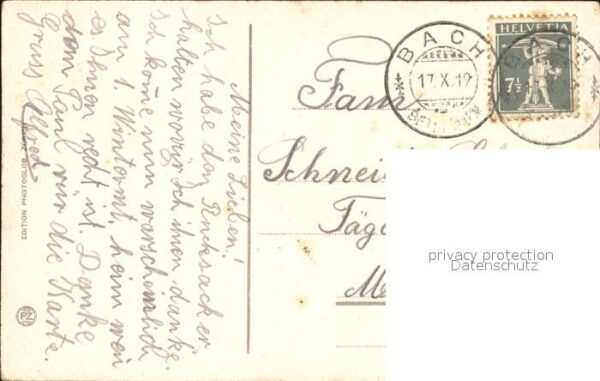 Meine Lieben!
Ich habe den Rucksack er
halten wovür ich ihnen danke.
Ich kome nun warscheinlich
am 1. Wintermt. heim wen
es Ihnen recht ist. Danke
dem Paul vür die Karte.
Gruss Alfred
EDITION PHOTOGLOB
PZ
BACH
17.X.19
HELVETIA
7½
BACH
Fam
Schnei
Täge
M
privacy protection
Datenschutz